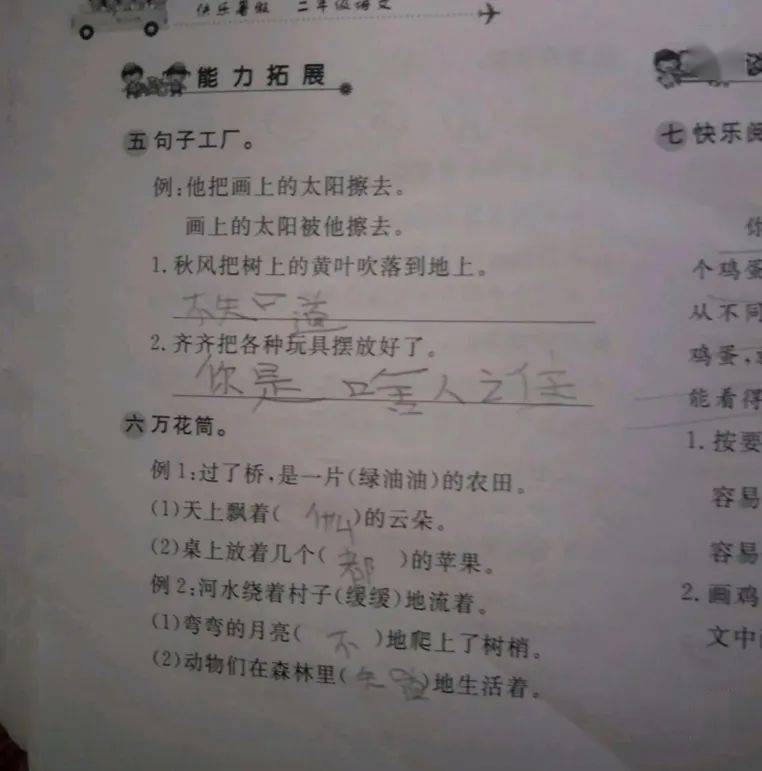 快乐暑假 二年级语文
能力拓展
五 句子工厂。
例:他把画上的太阳擦去。
画上的太阳被他擦去。
1.秋风把树上的黄叶吹落到地上。
2.齐齐把各种玩具摆放好了。
你是啥人之住
六 万花筒。
例1:过了桥,是一片(绿油油)的农田。
(1)天上飘着(仙)的云朵。
(2)桌上放着几个(都)的苹果。
例2:河水绕着村子(缓缓)地流着。
(1)弯弯的月亮(不)地爬上了树梢。
(2)动物们在森林里()地生活着。
七 快乐阅
个鸡蛋
从不同
鸡蛋,
能看得
1.按要
容易
容易
2.画鸡
文中